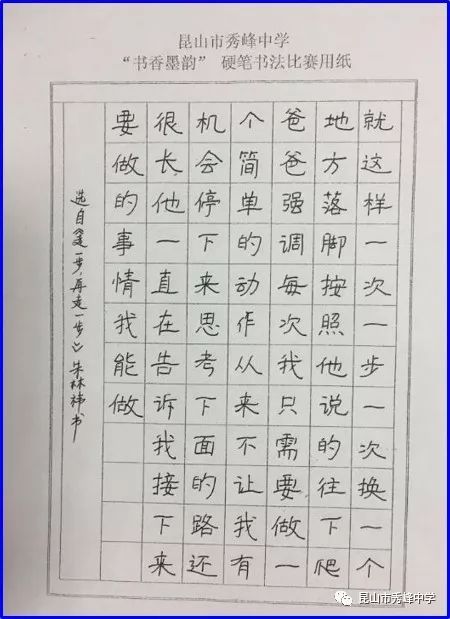 昆山市秀峰中学
“书香墨韵” 硬笔书法比赛用纸
就这样一次一步一次换一个
地方落脚按照他说的往下爬
爸爸强调每次我只需要做一
个简单的动作从来不让我有
机会停下来思考下面的路还
很长他一直在告诉我接下来
要做的事情我能做
选自《走一步,再走一步》朱林祎书
昆山市秀峰中学